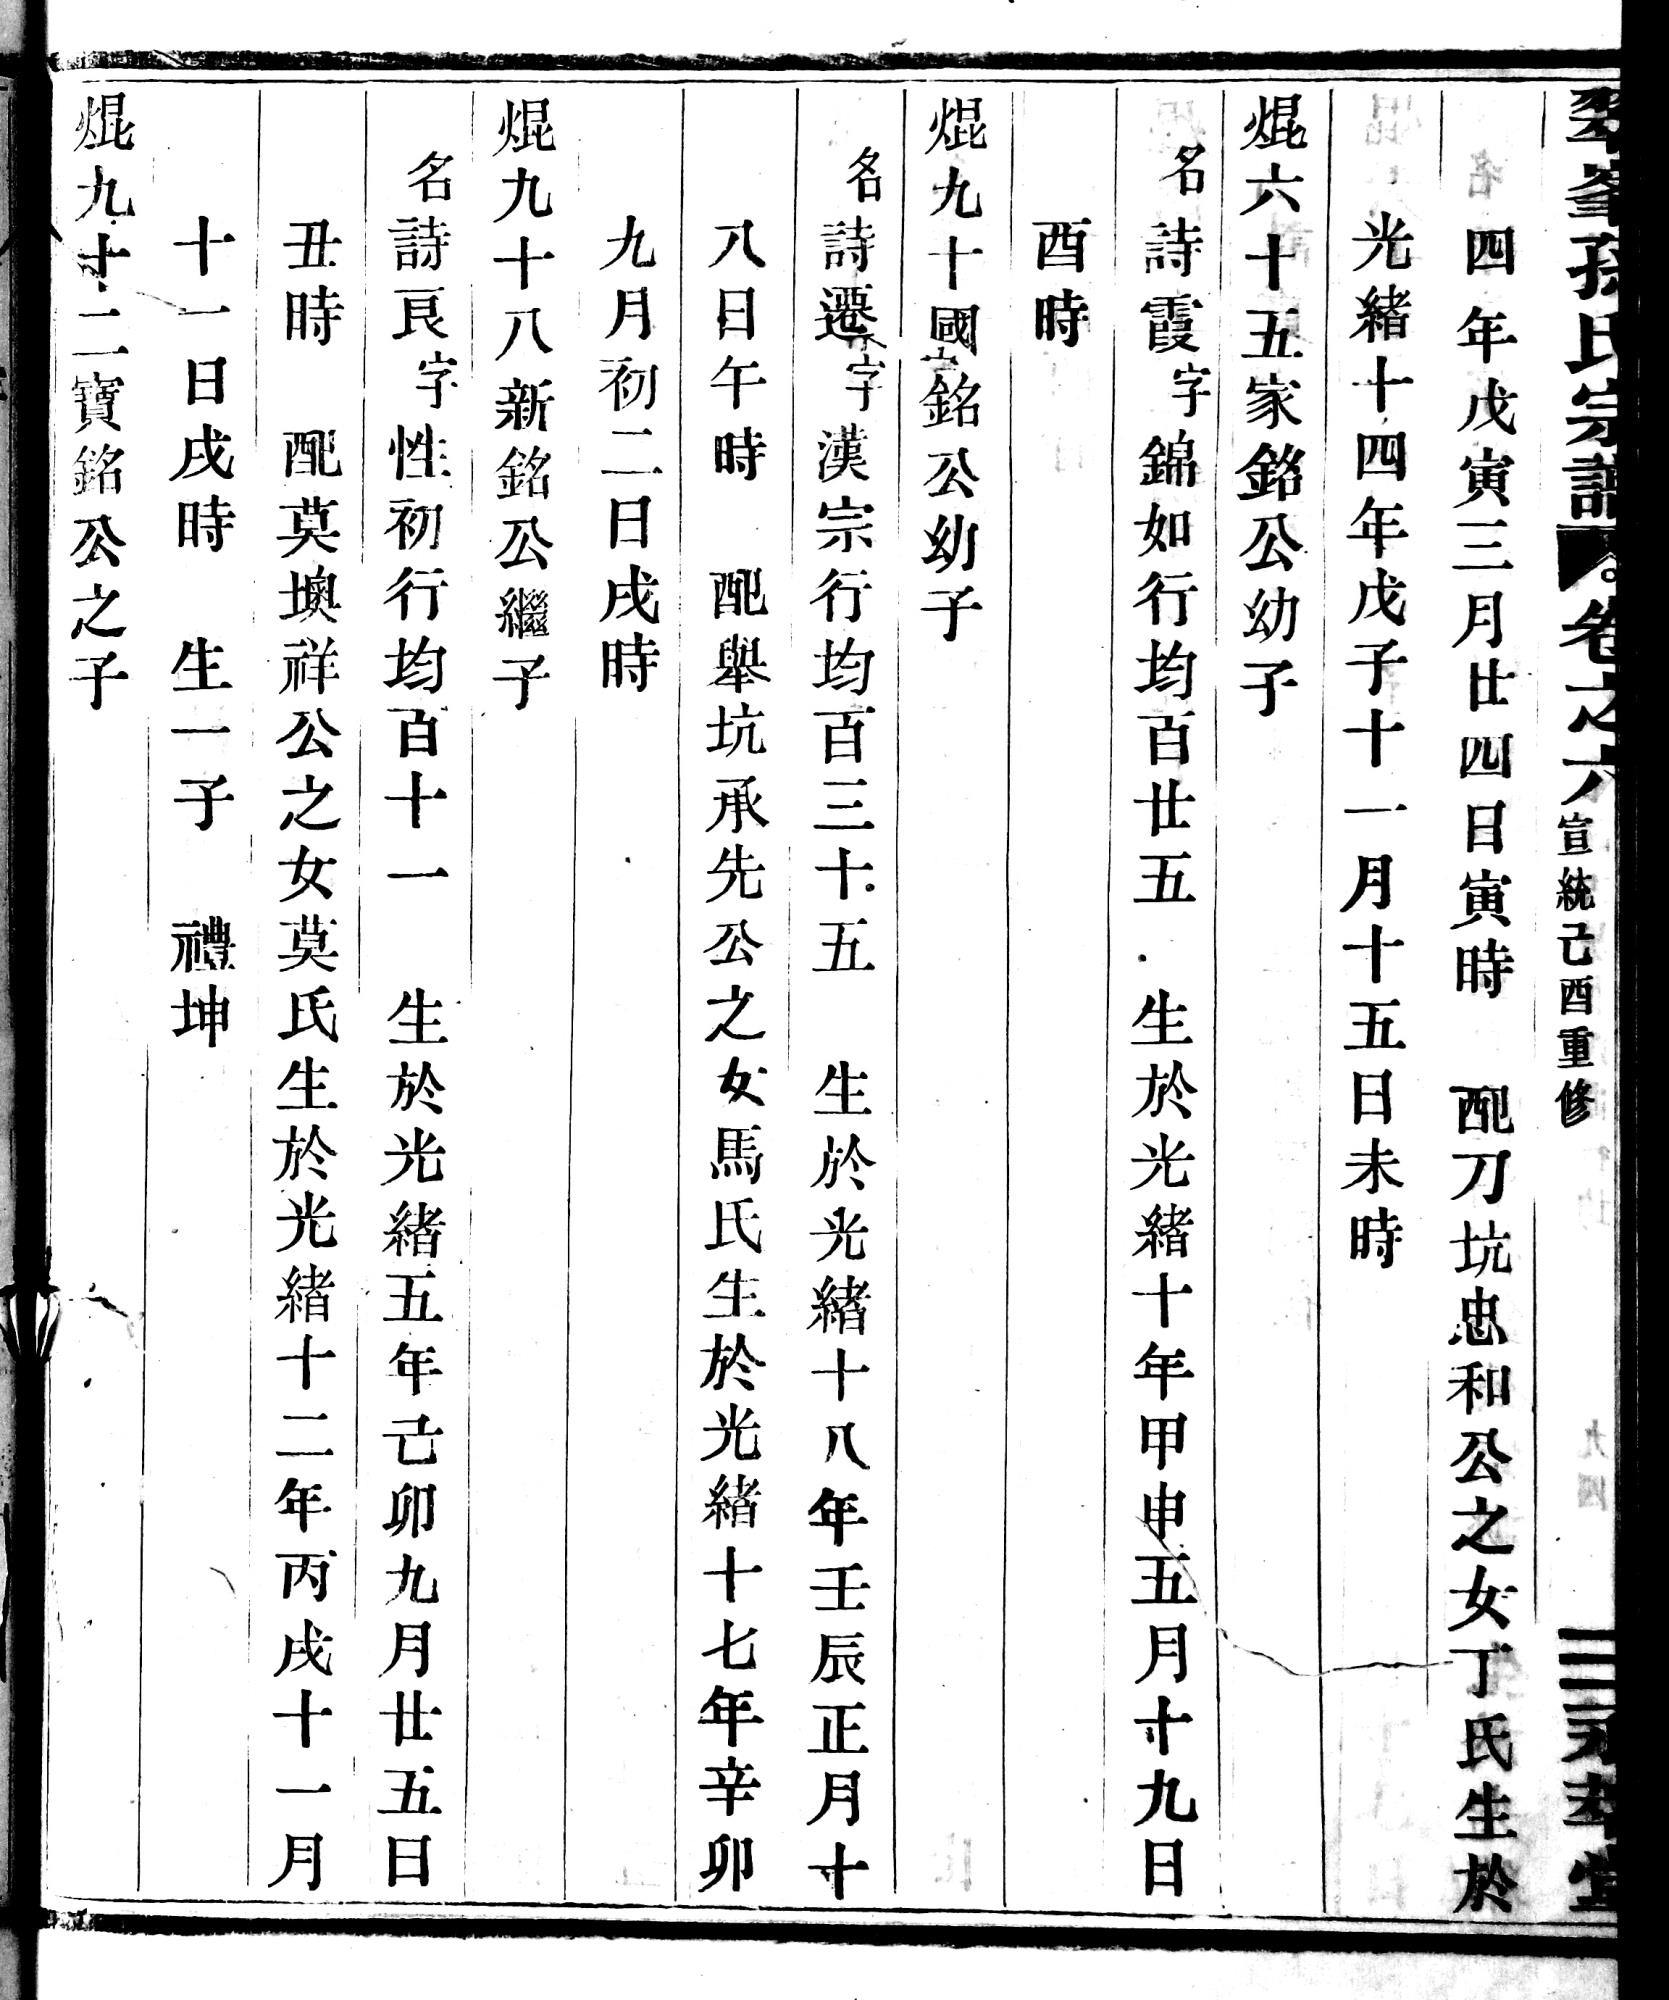 翠峯孫氏宗譜 卷之六 宣統己酉重修 三 堂
四年戊寅三月廿四日寅時 配刀坑忠和公之女丁氏生於
光緒十四年戊子十一月十五日未時
焜六十五家銘公幼子
名詩霞字錦如行均百廿五 生於光緒十年甲申五月十九日
酉時
焜九十國銘公幼子
名詩遷字漢宗行均百三十五 生於光緒十八年壬辰正月十
八日午時 配舉坑承先公之女馬氏生於光緒十七年辛卯
九月初二日戌時
焜九十八新銘公繼子
名詩良字性初行均百十一 生於光緒五年己卯九月廿五日
丑時 配莫墺祥公之女莫氏生於光緒十二年丙戌十一月
十一日戌時 生一子 禮坤
焜九十二寶銘公之子